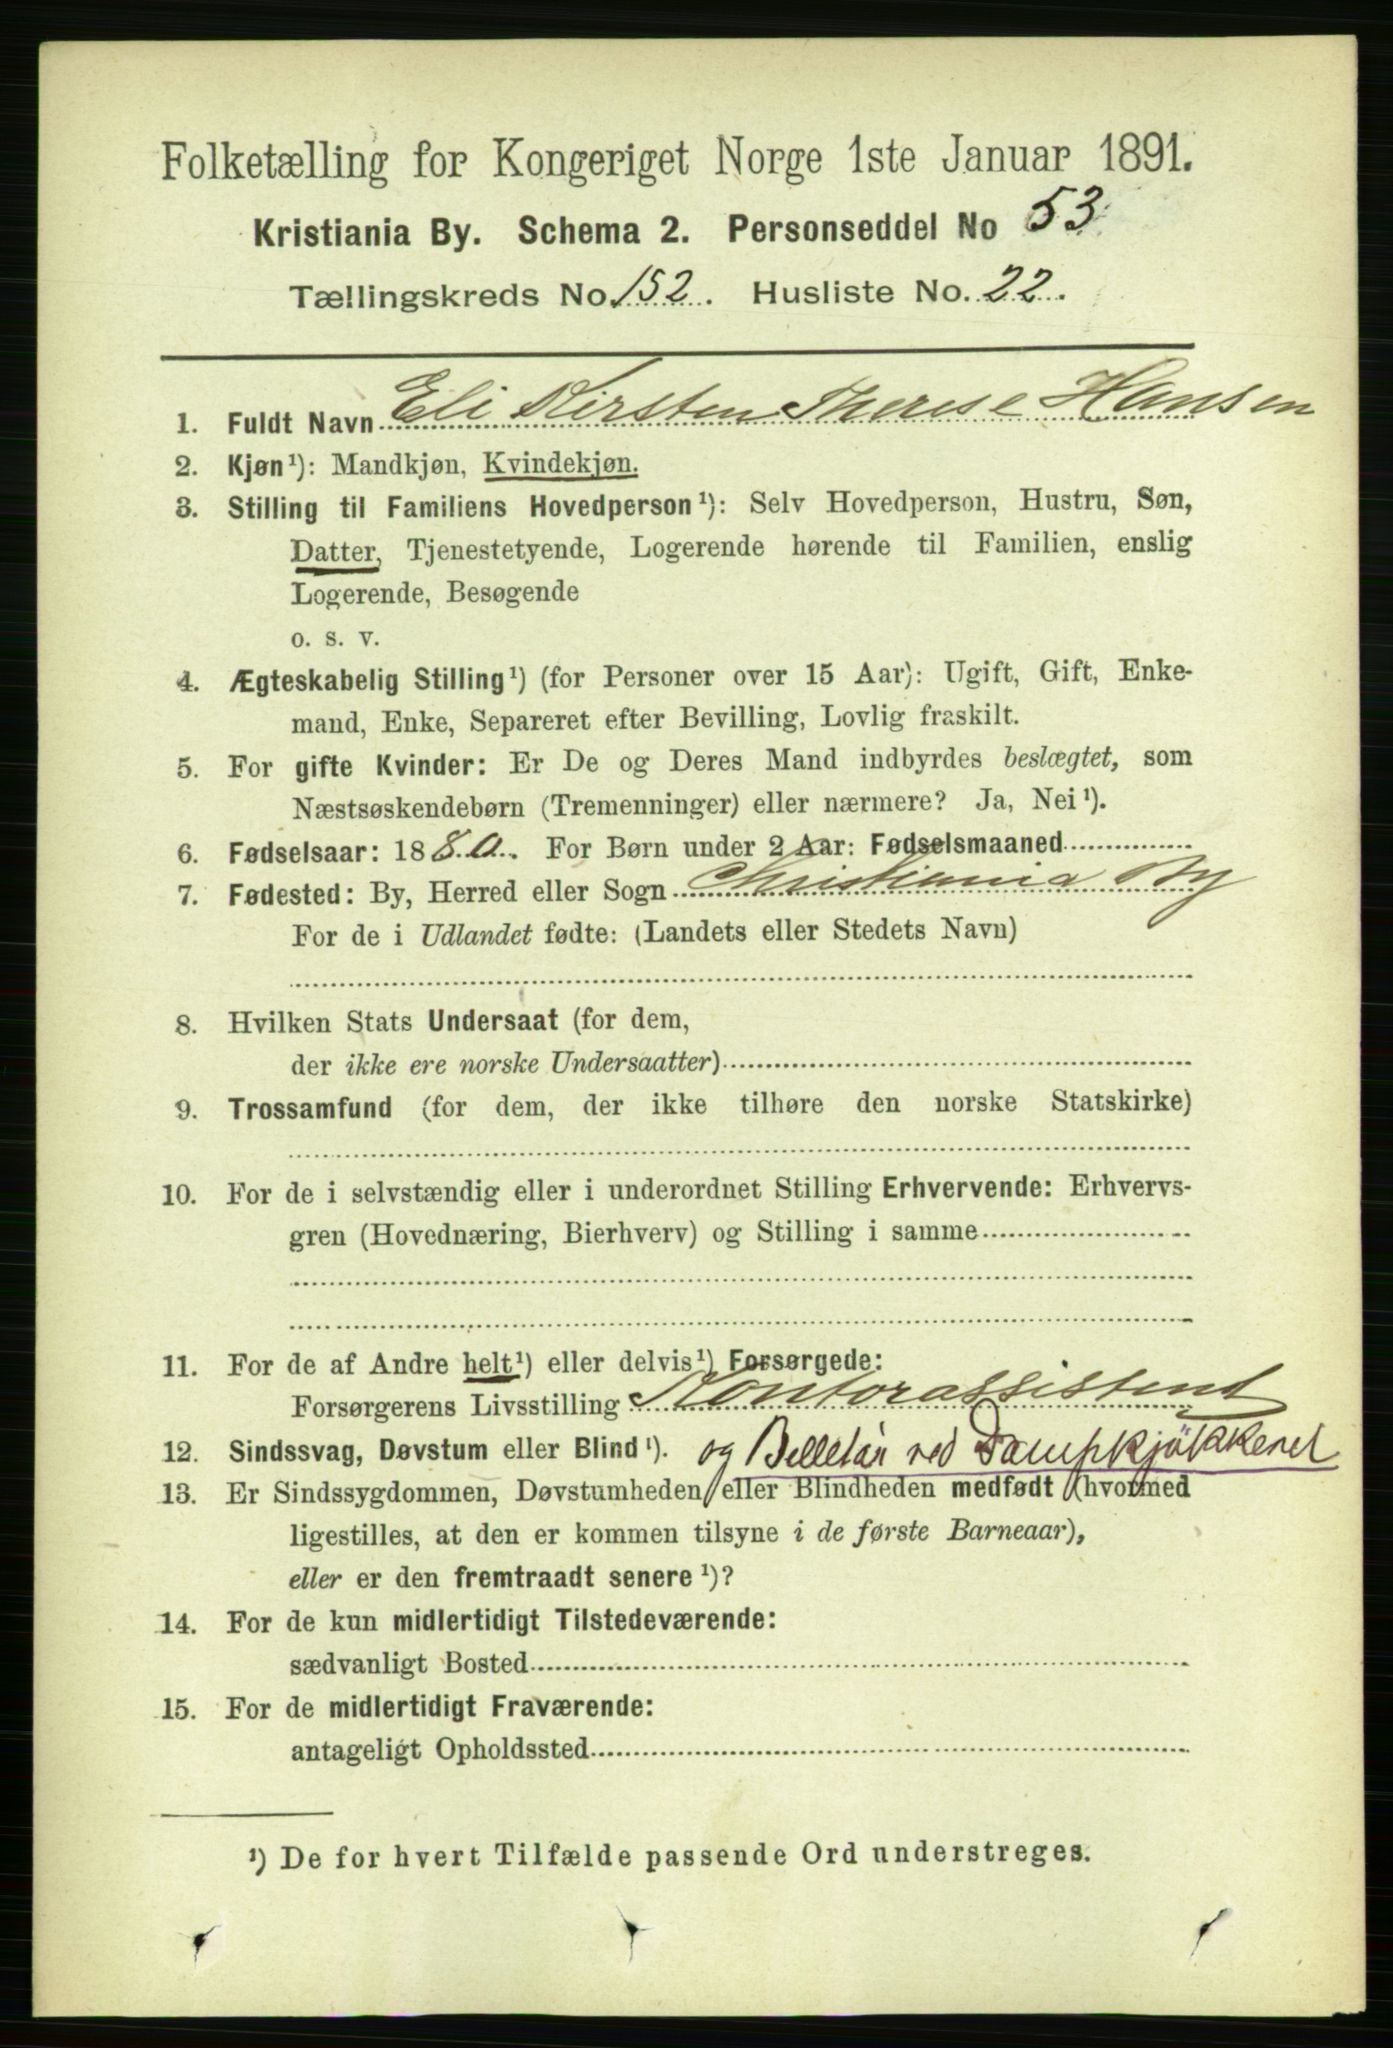 Folketælling for Kongeriget Norge 1ste Januar 1891.
Kristiania By. Schema 2. Personseddel No 53
Tællingskreds No. 152. Husliste No. 22.
1. Fuldt Navn Eli Kirsten Therese Hansen
2. Kjøn¹): Mandkjøn, Kvindekjøn.
3. Stilling til Familiens Hovedperson¹): Selv Hovedperson, Hustru, Søn,
Datter, Tjenestetyende, Logerende hørende til Familien, enslig
Logerende, Besøgende
o. s. v.
4. Ægteskabelig Stilling¹) (for Personer over 15 Aar): Ugift, Gift, Enke-
mand, Enke, Separeret efter Bevilling, Lovlig fraskilt.
5. For gifte Kvinder: Er De og Deres Mand indbyrdes beslægtet, som
Næstsøskendebørn (Tremenninger) eller nærmere? Ja, Nei¹).
6. Fødselsaar: 1880. For Børn under 2 Aar: Fødselsmaaned
7. Fødested: By, Herred eller Sogn Christiania By
For de i Udlandet fødte: (Landets eller Stedets Navn)
8. Hvilken Stats Undersaat (for dem,
der ikke ere norske Undersaatter)
9. Trossamfund (for dem, der ikke tilhøre den norske Statskirke)
10. For de i selvstændig eller i underordnet Stilling Erhvervende: Erhvervs-
gren (Hovednæring, Bierhverv) og Stilling i samme
11. For de af Andre helt¹) eller delvis¹) Forsørgede:
Forsørgerens Livsstilling Kontorassistent
12. Sindssvag, Døvstum eller Blind¹). og Billetør ved Dampkjökkenet
13. Er Sindssygdommen, Døvstumheden eller Blindheden medfødt (hvormed
ligestilles, at den er kommen tilsyne i de første Barneaar),
eller er den fremtraadt senere¹)?
14. For de kun midlertidigt Tilstedeværende:
sædvanligt Bosted
15. For de midlertidigt Fraværende:
antageligt Opholdssted
¹) De for hvert Tilfælde passende Ord understreges.